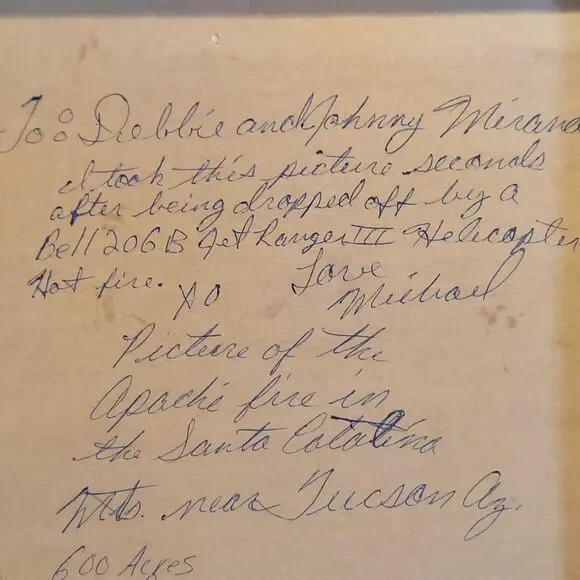 To: Debbie and Johnny
I took this picture seconds
after being dropped off by a
Bell 206B Jet Ranger III Helicopter
Hot fire.
XO Love
Michael
Picture of the
Apache fire in
the Santa Catalina
Mts. near Tucson Az.
600 Acres